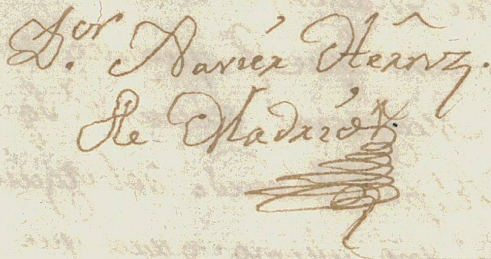 D.or Xavier Hernz.
de Madrid.